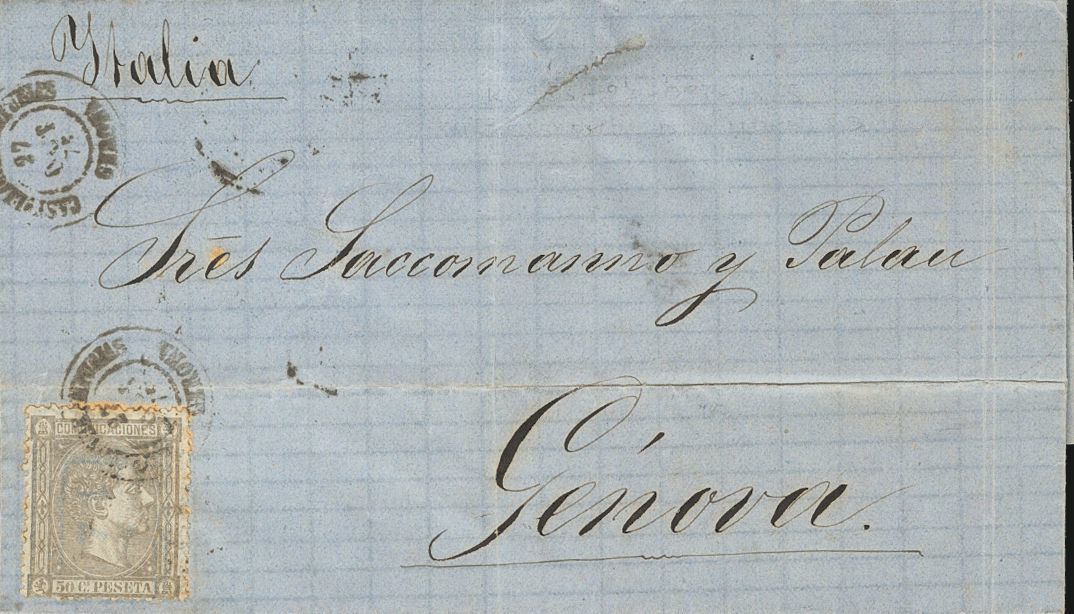 Italia
Srēs Saccomanno y Palau
Génova.
GERONA
COMUNICACIONES
50 C. PESETA